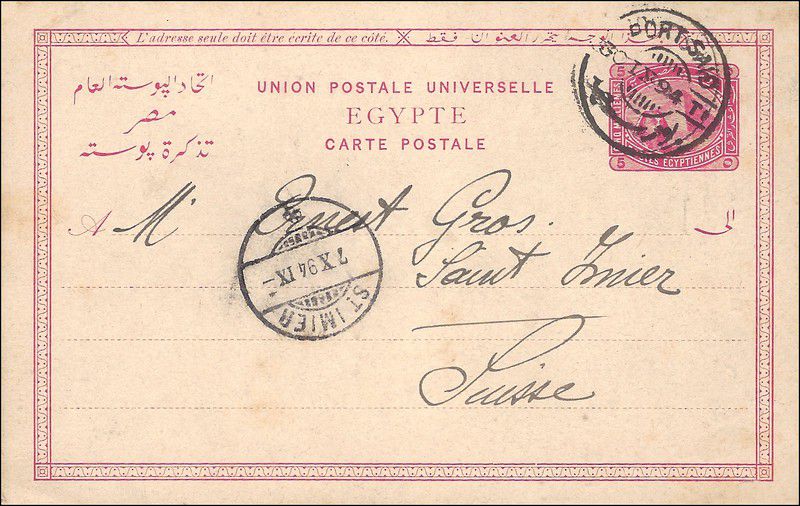 L'adresse seule doit être écrite de ce côté.
فقط
اتحاد البوسته العام
مصر
تذكرة بوسته
UNION POSTALE UNIVERSELLE
EGYPTE
CARTE POSTALE
PORT-SAID
IX 94 T
5 5
POSTES EGYPTIENNES
5
A Mr Ernest Gros.
الى
Saint Imier
Suisse
7 X 94 IX
ST. IMIER